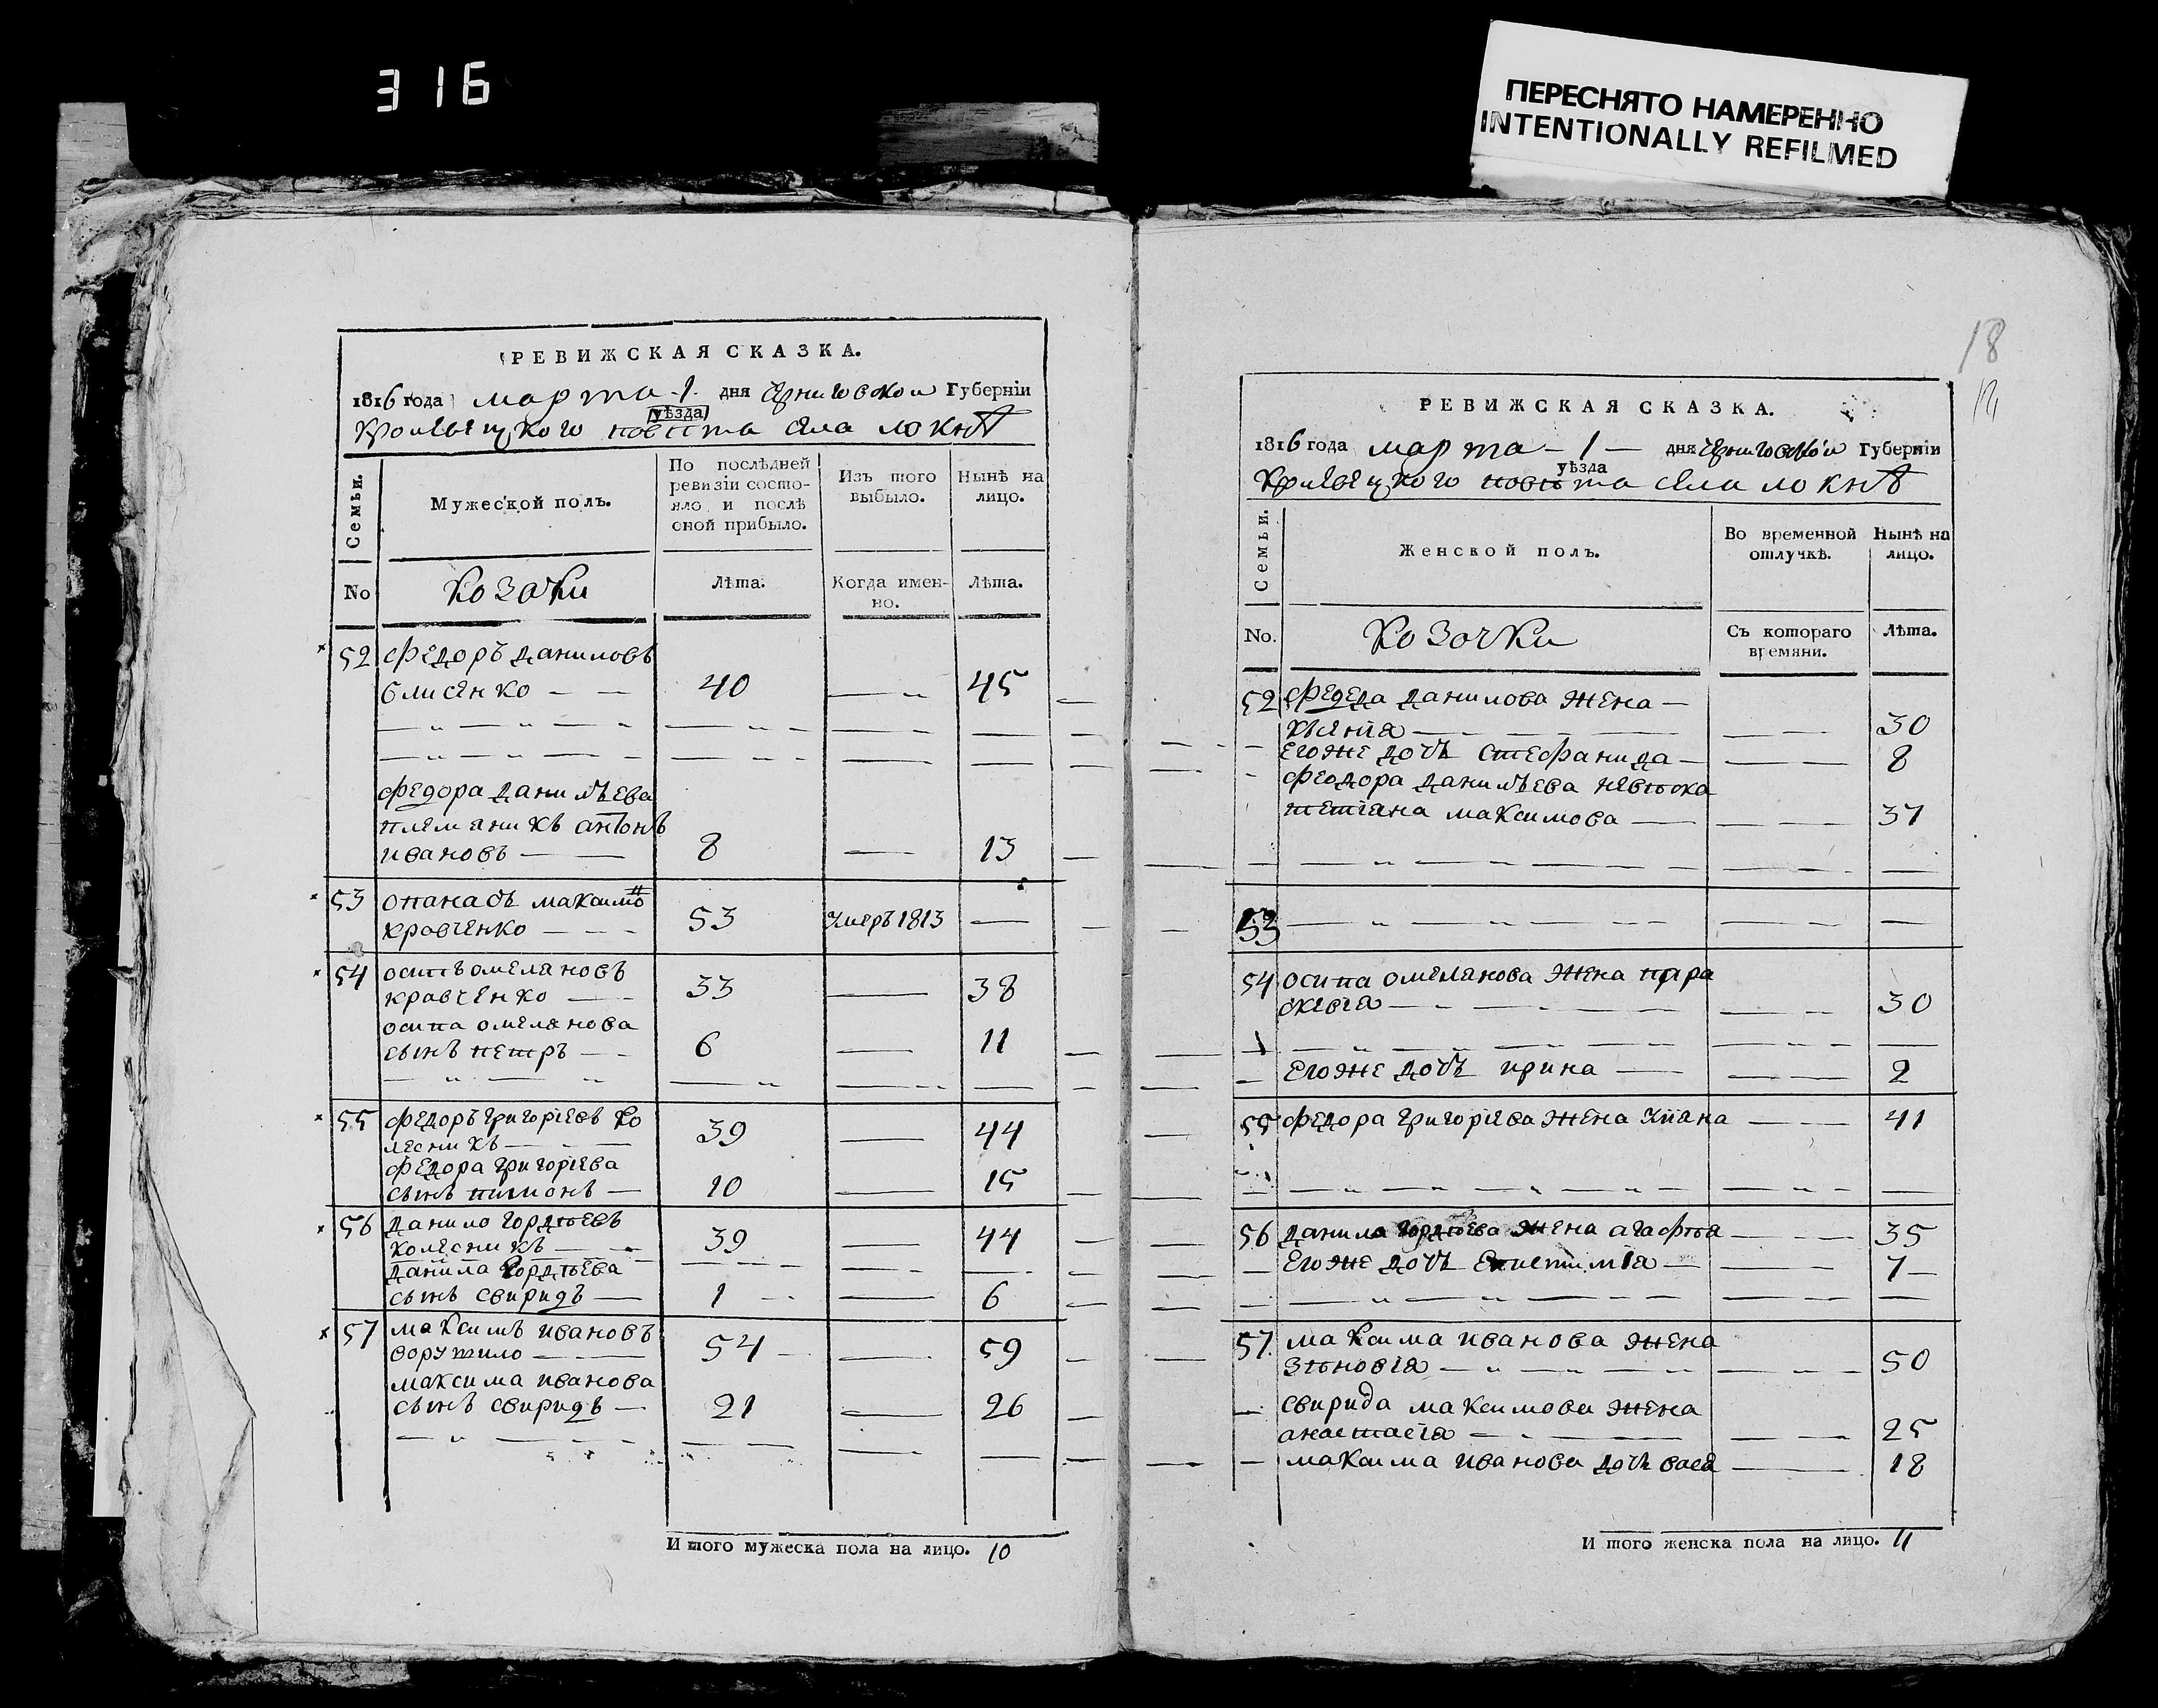 316
ПЕРЕСНЯТО НАМЕРЕННО
INTENTIONALLY REFILMED
РЕВИЖСКАЯ СКАЗКА.
1816 года марта 1. дня Черниговской Губерніи
уѣзда
Кролевецкого повѣта села Локнѣ
Семьи.
Мужеской полъ.
По послѣдней ревизіи состояло и послѣ оной прибыло.
Изъ того выбыло.
Нынѣ на лицо.
No
Козаки
Лѣта.
Когда именно.
Лѣта.
52 Федоръ Даниловъ
Блисенко — — 40 — 45
Федора Данилѣева
племяникъ антонъ
ивановъ — 8 — 13
53 опанасъ максимо
кравченко — — 53 Умеръ 1813 —
54 осипъ омеляновъ
кравченко — 33 — 38
осипа омелянова
сынъ петръ — 6 — 11
55 Федоръ григоріевъ Ко
лесникъ — 39 — 44
Федора григоріева
сынъ пимонъ — 10 — 15
56 Данило гордѣевъ
колесникъ — 39 — 44
Данила гордѣева
сынъ свиридъ — 1 — 6
57 максимъ ивановъ
ворушило — 54 — 59
максима иванова
сынъ свиридъ — 21 — 26
И того мужеска пола на лицо. 10
18
РЕВИЖСКАЯ СКАЗКА.
1816 года марта — 1 — дня Черниговской Губерніи
уѣзда
Кролевецкого повѣта села Локнѣ
Семьи.
Женской полъ.
Во временной отлучкѣ.
Нынѣ на лицо.
No.
Козачки
Съ котораго времяни.
Лѣта.
52 Данилова жена —
30
егоже дочь стефанида — 8
феодора Данилѣева невѣска
тетіана максимова — 37
53
54 осипа омелянова жена пара
скевіа — 30
егоже дочь ирина — 2
55 Федора григоріева жена уліана — 41
56 Данила гордѣева жена агафія — 35
егоже дочь — 7
57. максима иванова жена
зѣновіа — 50
свирида максимова жена
анастасіа — 25
— максима иванова дочь васа — 18
И того женска пола на лицо. 11